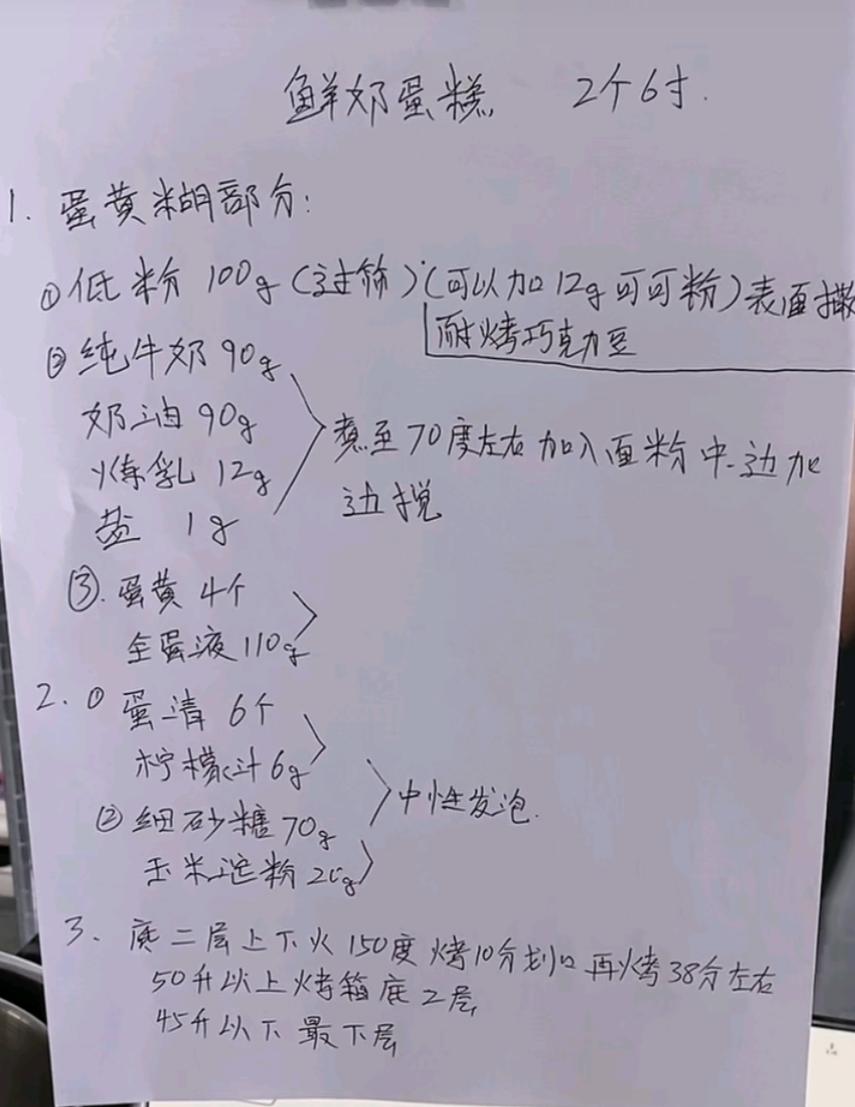 鲜奶蛋糕 2个6寸.
1. 蛋黄糊部分:
①低粉 100g (过筛) (可以加12g可可粉) 表面撒
耐烤巧克力豆
②纯牛奶 90g
奶油 90g
炼乳 12g
盐 1g
煮至70度左右加入面粉中边加
边搅
③. 蛋黄 4个
全蛋液 110g
2. ① 蛋清 6个
柠檬汁 6g
② 细砂糖 70g
玉米淀粉 g
中性发泡.
3、底二层上下火150度烤10分划口再烤38分左右
50升以上烤箱底2层
45升以下最下层